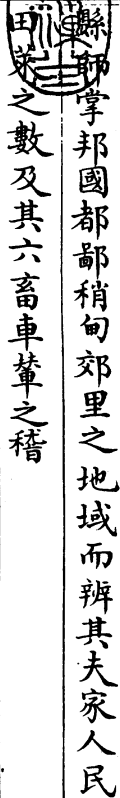 縣師掌邦國都鄙稍甸郊里之地域而辨其夫家人民
田萊之數及其六畜車輦之稽